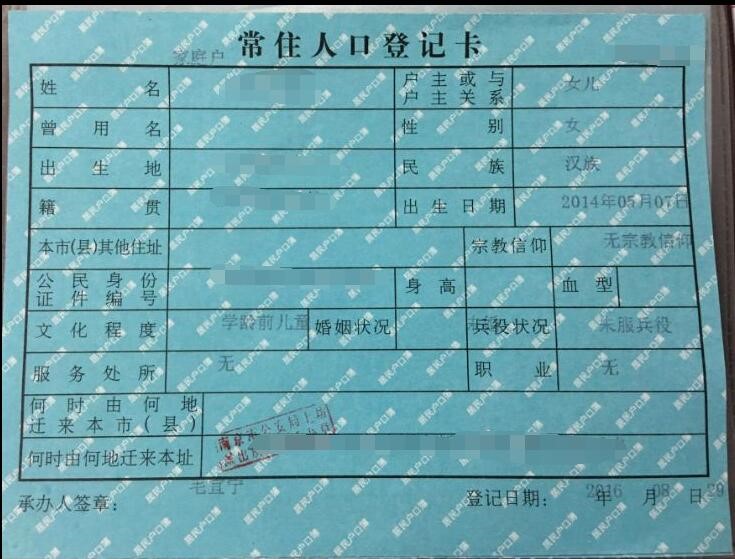 常住人口登记卡
家庭户
姓名
户主或与户主关系 女儿
曾用名 性别 女
出生地 民族 汉族
籍贯 出生日期 2014年05月07日
本市(县)其他住址 宗教信仰 无宗教信仰
公民身份证件编号 身高 血型
文化程度 学龄前儿童 婚姻状况 兵役状况 未服兵役
服务处所 无 职业 无
何时由何地迁来本市(县)
何时由何地迁来本址
承办人签章: 毛宜宁 登记日期: 2016年08月29日